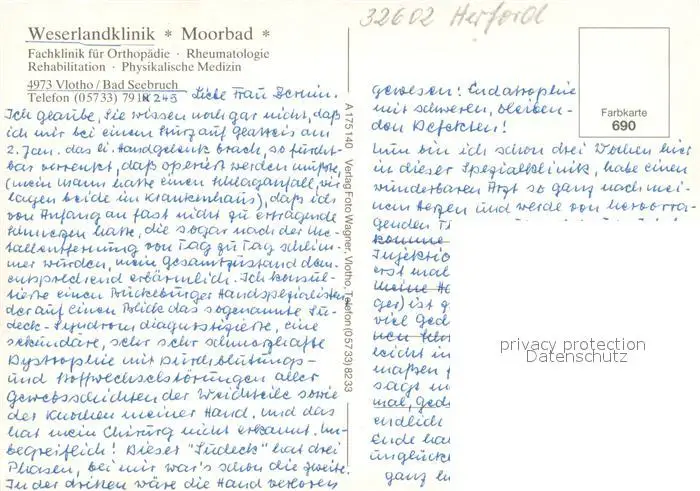 32602 Herford
Weserlandklinik * Moorbad *
Fachklinik für Orthopädie · Rheumatologie
Rehabilitation · Physikalische Medizin
4973 Vlotho / Bad Seebruch
Telefon (05733) 791
Liebe Frau
Ich glaube, Sie wissen noch gar nicht, daß
ich mir bei einem Sturz auf Glatteis am
2. Jan. das li. Handgelenk brach, so furcht-
bar verrenkt, daß operiert werden mußte,
(mein Mann hatte einen Schlaganfall, wir
lagen beide im Krankenhaus), daß ich
von Anfang an fast nicht zu ertragende
Schmerzen hatte, die sogar nach der Me-
tallentfernung von Tag zu Tag schlim-
mer wurden, mein Gesamtzustand dem-
entsprechend erbärmlich. Ich konsul-
tierte einen Bückeburger Handspezialisten
der auf einen Blick das sogenannte Su-
deck-Syndrom diagnostizierte, eine
sekundäre, sehr sehr schmerzhafte
Dystrophie mit Durchblutungs-
und Stoffwechselstörungen aller
Gewebsschichten der Weichteile sowie
der Knochen meiner Hand, und das
hat mein Chirurg nicht erkannt. Un-
begreiflich! Dieser "Sudeck" hat drei
Phasen, bei mir war's schon die zweite.
In der dritten wäre die Hand verloren
A 175 140 Verlag Foto Wagner, Vlotho, Telefon (05733) 8233
Farbkarte
690
gewesen! Endatrophie
mit schweren, bleiben-
den Defekten!
Nun bin ich schon drei Wochen hier
in dieser Spezialklinik, habe einen
wunderbaren Arzt so ganz nach mei-
nem Herzen und werde von hervorra-
genden
komme
Injektio
erst mal
meine
ger) ist
viel Ged
leicht in
maßen
sagt
mal, ged
endlich
Ende ha
unglück
ganz
privacy protection
Datenschutz